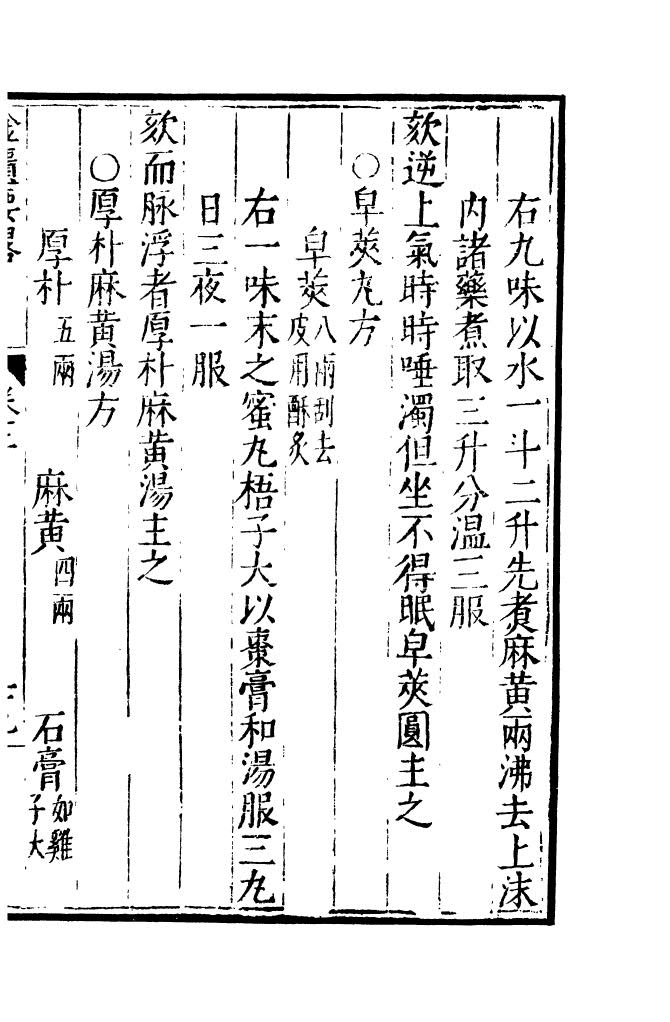 右九味以水一斗二升先煮麻黄兩沸去上沫
内諸藥煮取三升分温三服
欬逆上氣時時唾濁但坐不得眠皁莢圓主之
○皁莢丸方
皁莢八兩刮去皮用酥炙
右一味末之蜜丸梧子大以棗膏和湯服三丸
日三夜一服
欬而脉浮者厚朴麻黄湯主之
○厚朴麻黄湯方
厚朴五兩 麻黄四兩 石膏如雞子大